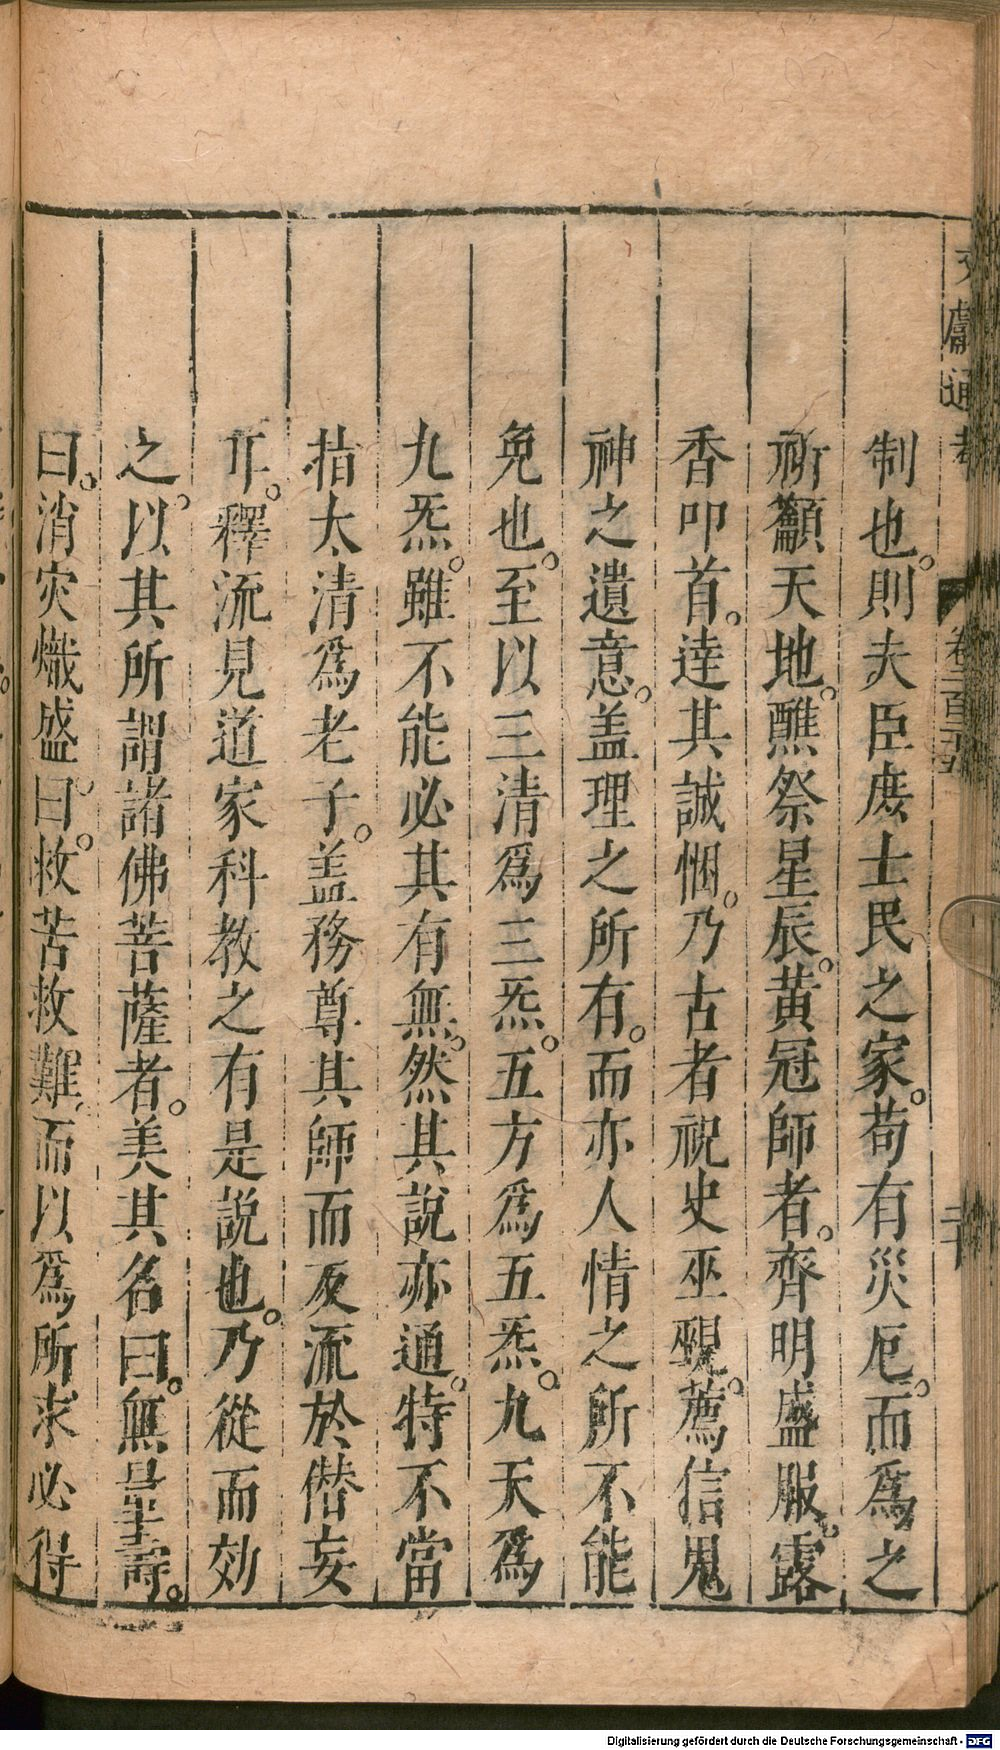 文獻通考
卷二百二十五
二十
制也。則夫臣庶士民之家。苟有災厄。而爲之
祈籲天地。醮祭星辰。黃冠師者。齊明盛服。露
香叩首。達其誠悃。乃古者祝史巫覡。薦信鬼
神之遺意。盖理之所有。而亦人情之所不能
免也。至以三清爲三炁。五方爲五炁。九天爲
九炁。雖不能必其有無。然其說亦通。特不當
指太清爲老子。盖務尊其師而反流於僣妄
耳。釋流見道家科教之有是說也。乃從而効
之。以其所謂諸佛菩薩者。美其名曰。無量壽。
曰。消灾熾盛。曰。救苦救難。而以爲所求必得
Digitalisierung gefördert durch die Deutsche Forschungsgemeinschaft - DFG